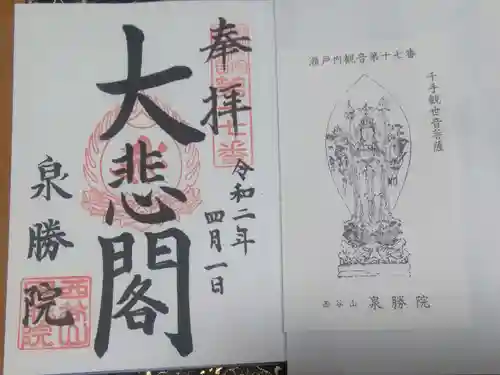 奉拝
令和二年
四月一日
大悲閣
泉勝院
瀬戸内観音第十七番
千手観世音菩薩
西谷山 泉勝院